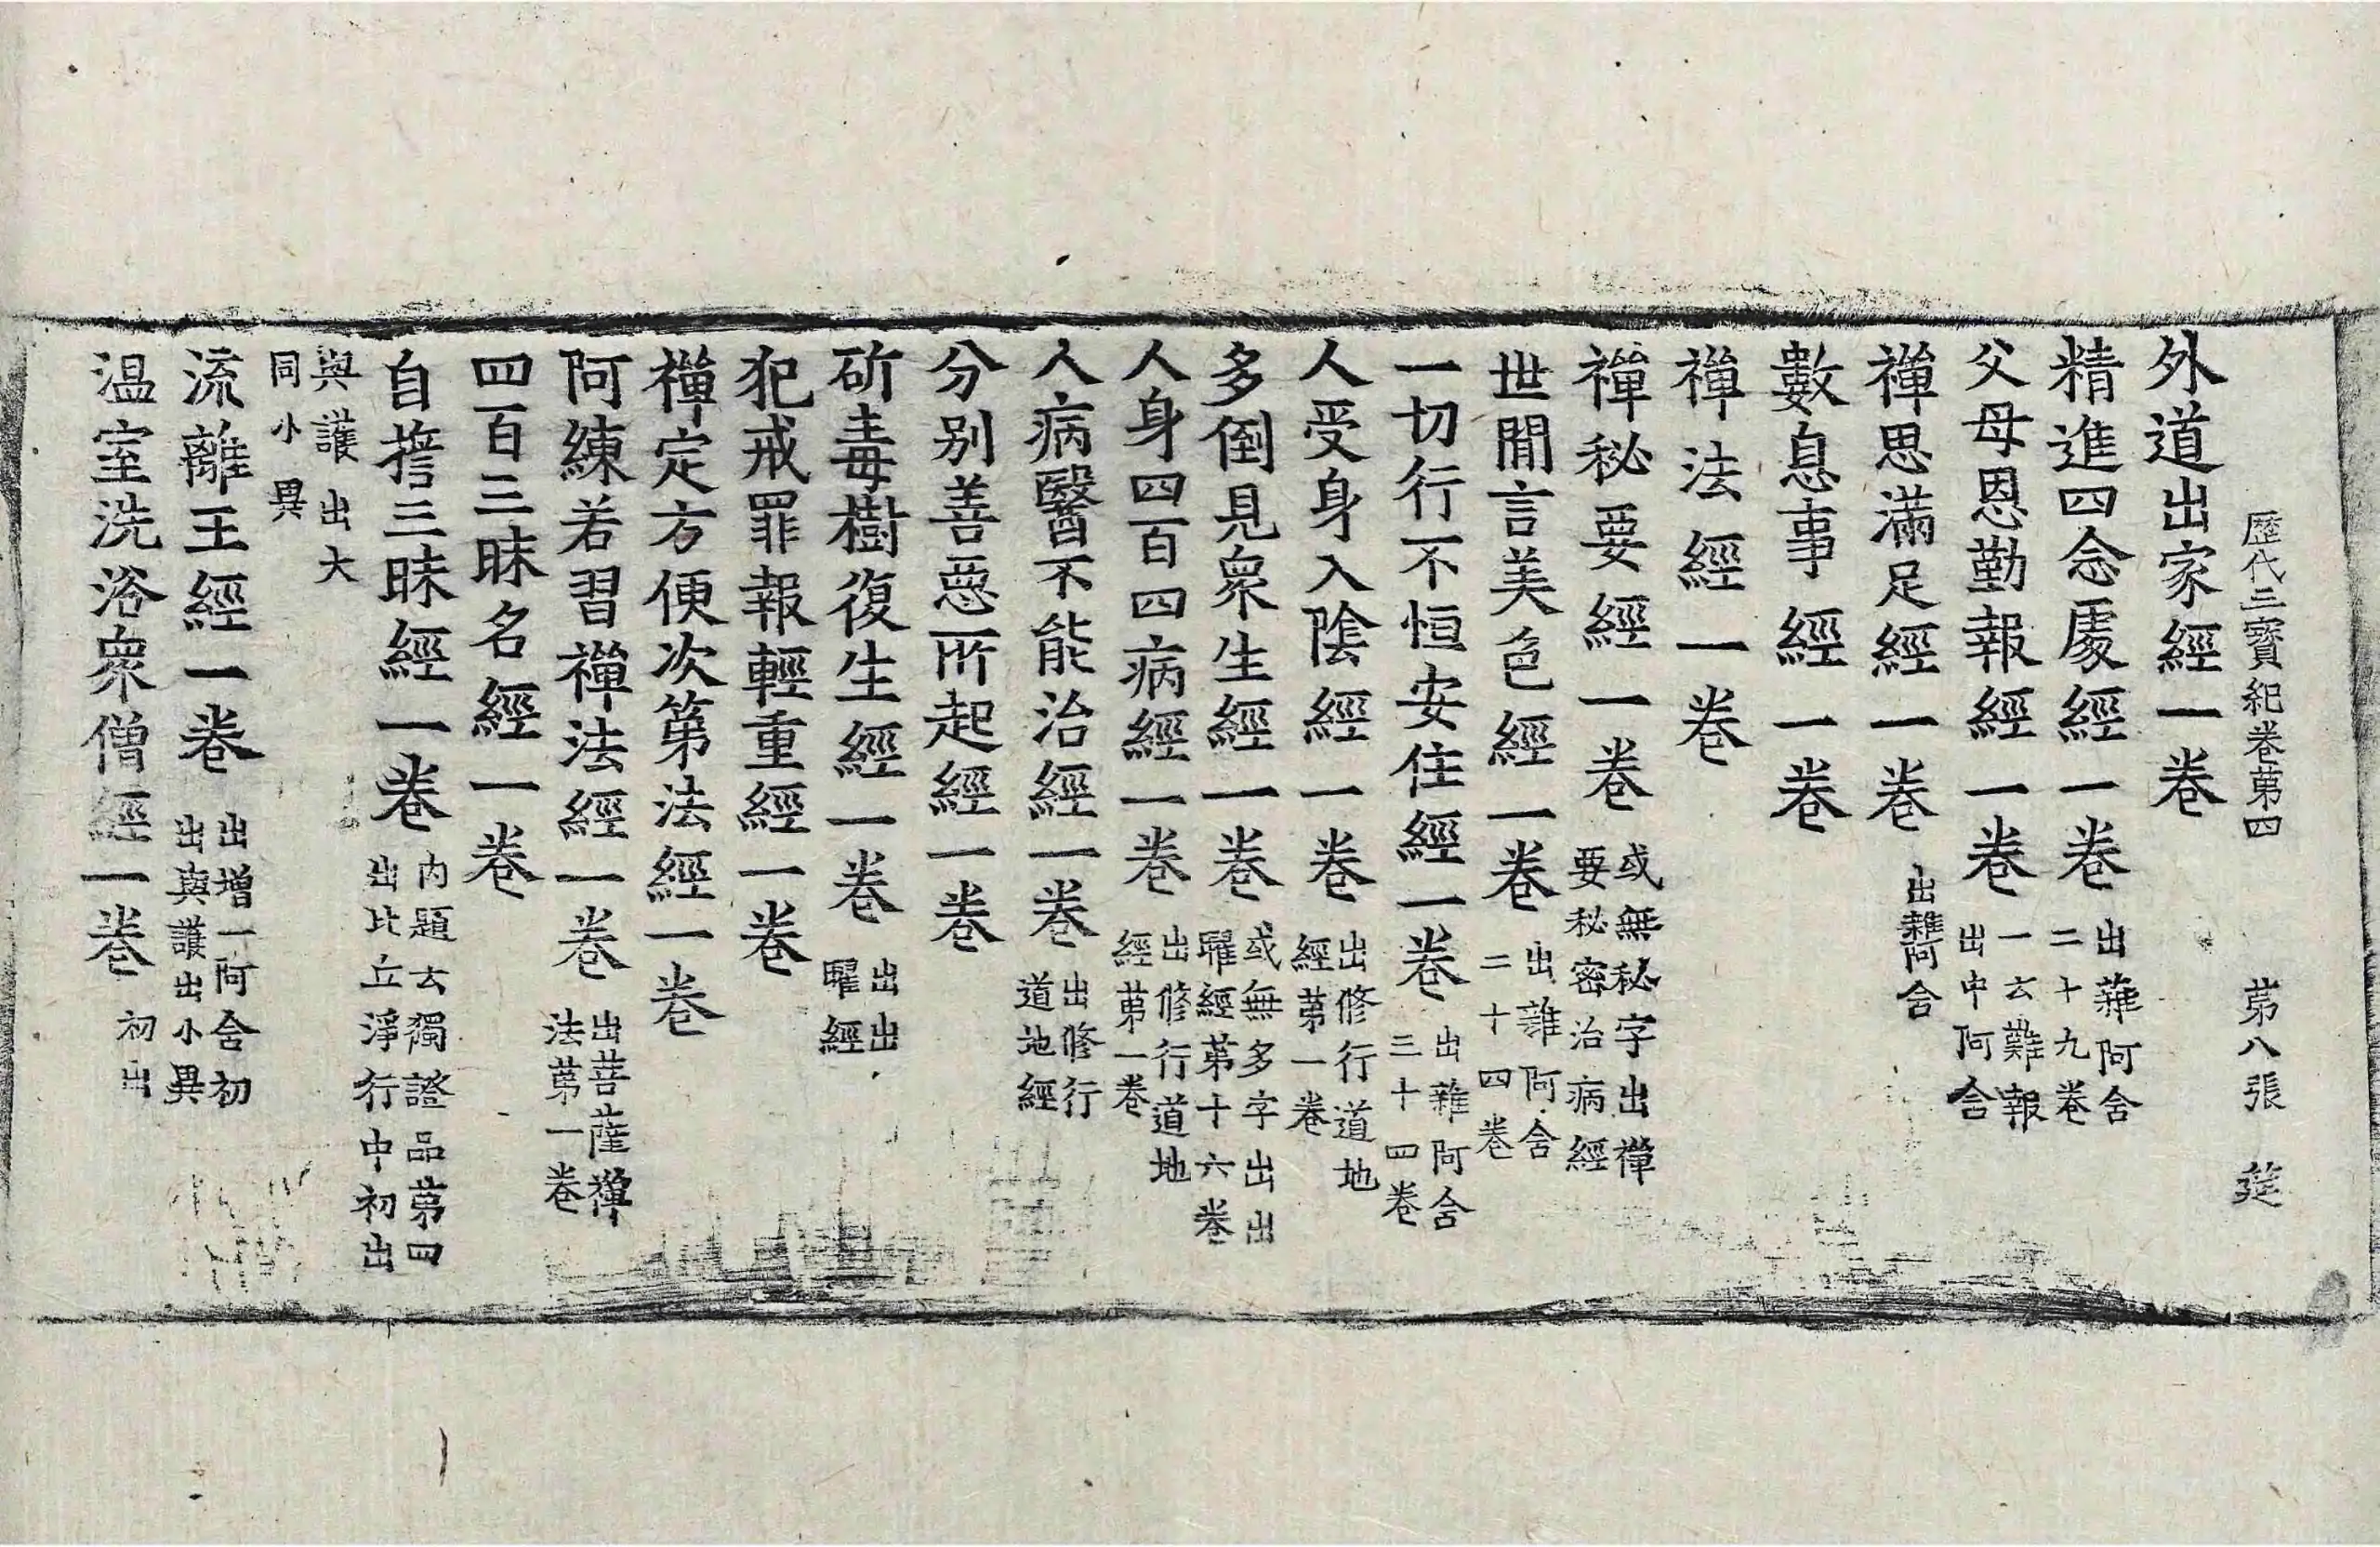 歷代三寶紀卷苐四 苐八張 莚
外道出家經一卷
精進四念處經一卷 出雜阿含二十九卷
父母恩勤報經一卷 一云難報出中阿含
禪思滿足經一卷 出雜阿含
數息事經一卷
禪法經一卷
禪秘要經一卷 或無秘字出禪要秘密治病經
世閒言美色經一卷 出雜阿含二十四卷
一切行不恒安住經一卷 出雜阿含三十四卷
人受身入陰經一卷 出修行道地經苐一卷
多倒見衆生經一卷 或無多字出出曜經苐十六卷
人身四百四病經一卷 出修行道地經苐一卷
人病醫不能治經一卷 出修行道地經
分別善惡所起經一卷
斫毒樹復生經一卷 出出曜經
犯戒罪報輕重經一卷
禪定方便次第法經一卷
阿練若習禪法經一卷 出菩薩禪法苐一卷
四百三昧名經一卷
自誓三昧經一卷 内題云獨證品苐四出比丘淨行中初出
與護出大同小異
流離王經一卷 出增一阿含初出與護出小異
温室洗浴衆僧經一卷 初出